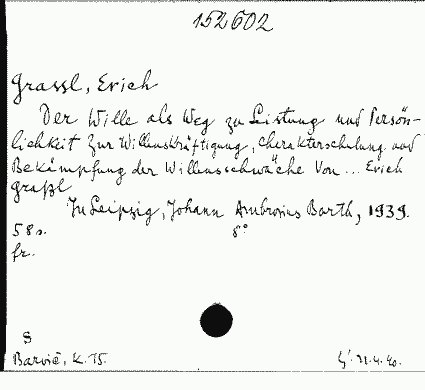 152602
Grassl, Erich
Der Wille als Weg zu Leistung und Persön-
lichkeit zur Willenskräftigung, Charakterschulung und
Bekämpfung der Willensschwäche Von ... Erich
Graßl
In Leipzig, Johann Ambrosius Barth, 1939.
58 s. 8°
fr.
S
Barvič, K. 75. 21.4.40.